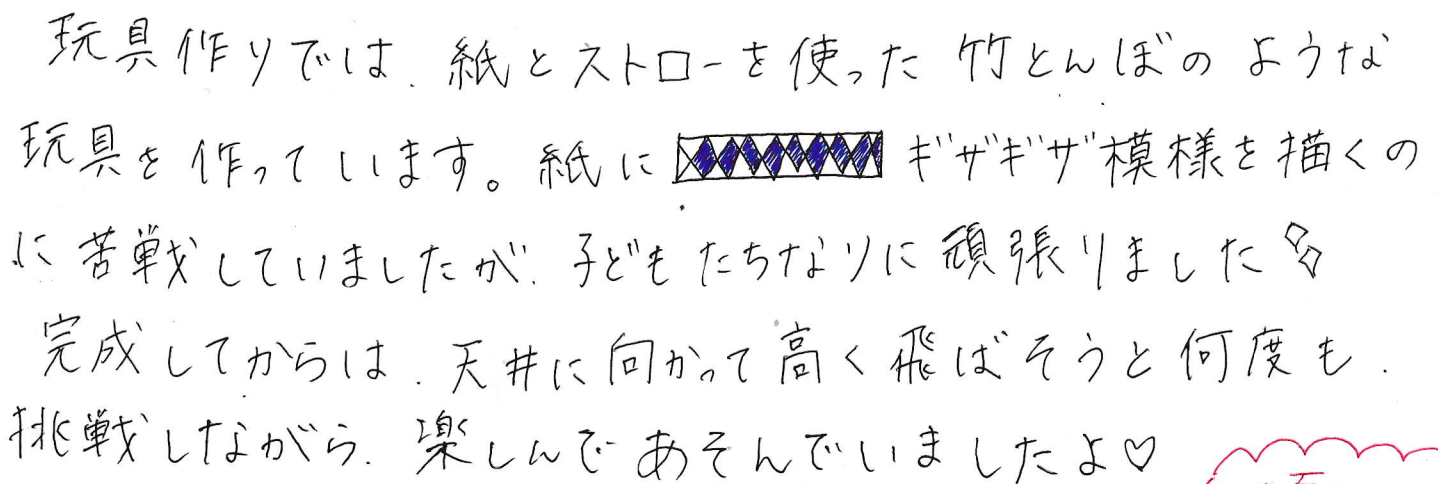 玩具作りでは、紙とストローを使った竹とんぼのような
玩具を作っています。紙にギザギザ模様を描くの
に苦戦していましたが、子どもたちなりに頑張りました
完成してからは、天井に向かって高く飛ばそうと何度も
挑戦しながら、楽しんであそんでいましたよ♡